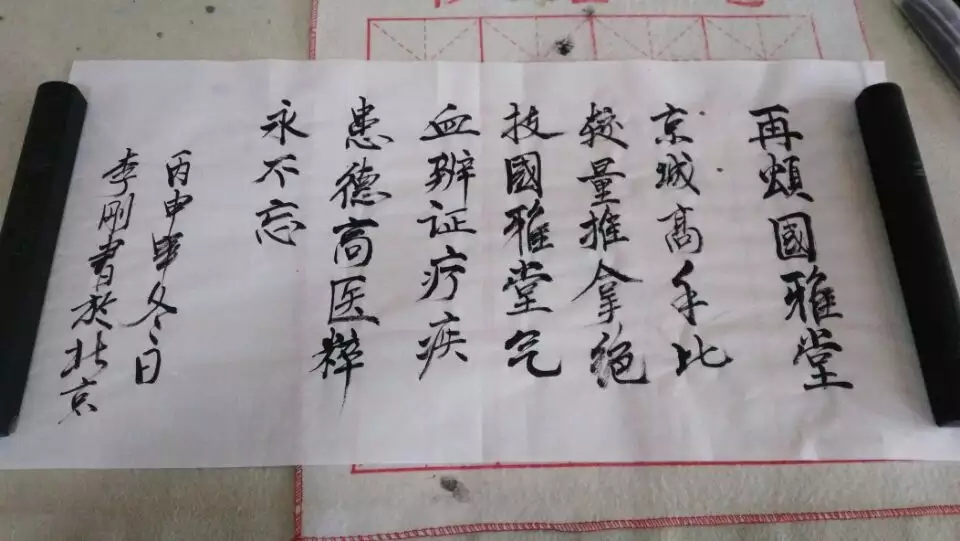 再頌國雅堂
京城高手比
较量推拿绝
技國雅堂气
血辨证疗疾
患德高医粹
永不忘
丙申年冬日
李刚書於北京